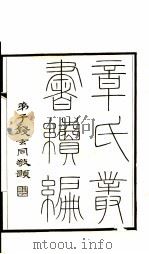 章氏叢
書續編
弟子錢玄同敬題
mtoou.info